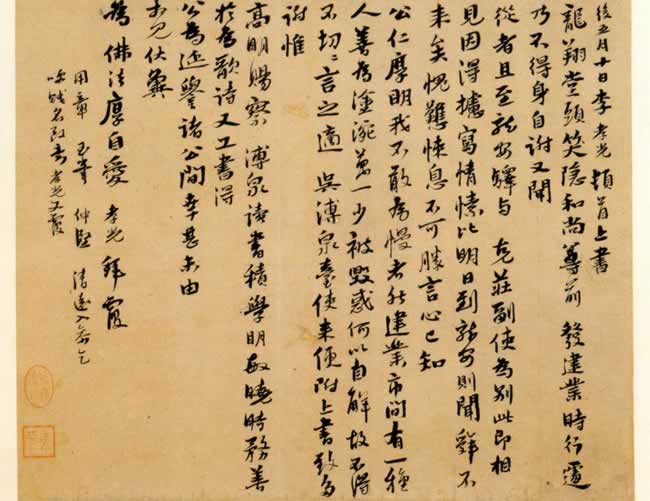 後五月十日李孝光頓首上書
龍翔堂頭笑隱和尚尊前 發建業時行遽
乃不得身自謝又聞
從者且至龍安驛與 克莊副使為別此即相
見因得攄寫情愫比明日到龍安則聞不
來矣愧難悚息不可勝言心已知
公仁厚明我不敢為慢者然建業市間有一種
人善為塗涴萬一少被毀惑何以自解故不得
不切〻言之適 吳溥泉臺使來便附上書致多
謝惟
高明賜察 溥泉讀書積學明敏曉時務善
於為歌詩又工書得
公為延譽諸公間幸甚未由
見伏冀
為佛法厚自愛 孝光 拜覆
用章 玉峯 仲堅 清遠
名 孝光又覆